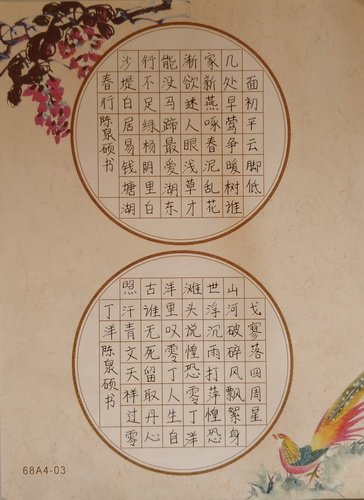 面初平云脚低
几处早莺争暖树谁
家新燕啄春泥乱花
渐欲迷人眼浅草才
能没马蹄最爱湖东
行不足绿杨阴里白
沙堤白居易钱塘湖
春行陈泉硕书
戈寥落四周星
山河破碎风飘絮身
世浮沉雨打萍惶恐
滩头说惶恐零丁洋
洋里叹零丁人生自
古谁无死留取丹心
照汗青文天祥过零
丁洋陈泉硕书
68A4-03